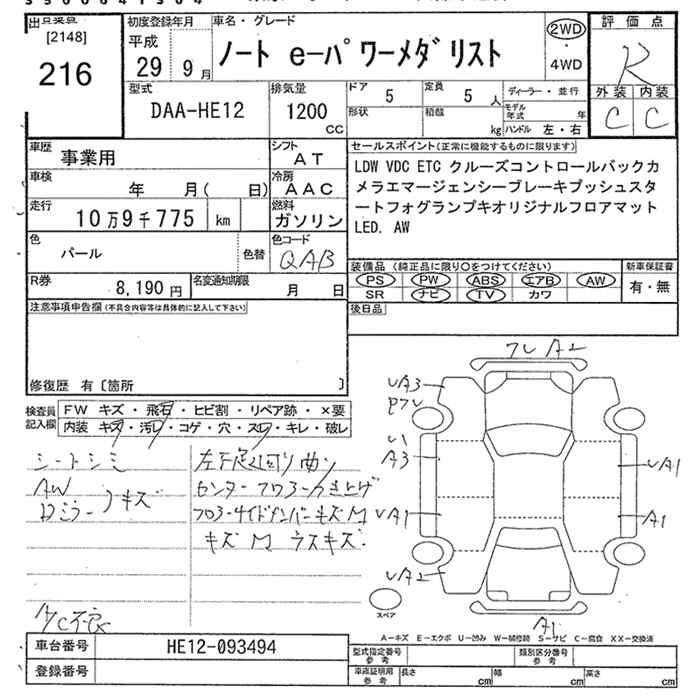 出品業者
[2148]
216
初度登録年月
平成
29年 9月
車名・グレード
ノート e-パワーメダリスト
2WD
・
4WD
評価点
R
外装 内装
C C
型式
DAA-HE12
排気量
1200
CC
ドア
5
定員
5 人
形状
積載
kg
ディーラー・並行
モデル年式 年
ハンドル 左・右
車歴
事業用
シフト
AT
車検
年 月( 日)
冷房
AAC
走行
10万9千775 km
燃料
ガソリン
セールスポイント(正常に機能するものに限ります)
LDW VDC ETC クルーズコントロールバックカ
メラエマージェンシーブレーキプッシュスタ
ートフォグランプキオリジナルフロアマット
LED. AW
色
パール
色替
色コード
QAB
R券
8,190円
名変通知期限
月 日
装備品(純正品に限り○をつけてください)
PS PW ABS エアB AW
SR ナビ TV カワ
新車保証書
有・無
注意事項申告欄(不具合内容等は具体的に記入して下さい)
後日品
修復歴 有〔箇所 〕
検査員
記入欄
FW キズ・飛石・ヒビ割・リペア跡・×要
内装 キズ・汚レ・コゲ・穴・スレ・キレ・破レ
シートシミ
AW
Dミラー キズ
A/C不良
左下足廻り曲り
センターフロアーツキ上ゲ
フロアーサイドメンバーキズM
キズM ラスキズ
フレA2
UA3
A3
UA1
UA2
UA1
A1
A1
スペア
A-キズ E-エクボ U-凹み W-補修跡 S-サビ C-腐食 XX-交換済
車台番号
HE12-093494
登録番号
型式指定番号
参考
類別区分番号
参考
車庫証明用
参考
長さ cm
幅 cm
高さ cm